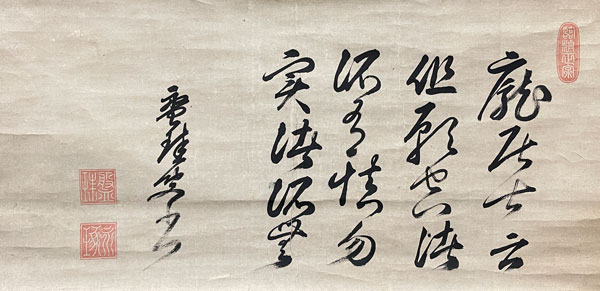 龐居士云
但願空諸
所有慎勿
実諸所無
盤珪
永琢